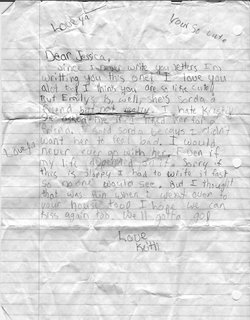 Love ya
Your so cute
Dear Jessica,
Since I never write you letters I'm
writting you this one! I love you
alot too! I think you are so like cute!
But Emily's is, well, she's sorda a
friend but not really. I hate Kristy
She asked me if I liked her for a
friend. I said sorda becays I didn't
want her to feel bad. I would
never ever go with her. Even if
my life on it. Sorry if
this is sloppy I had to write it fast
So no one would see. But I thought
that was fun when I went over to
your house too! I hope we can
kiss again too. Well gotta go!
Love
Keith